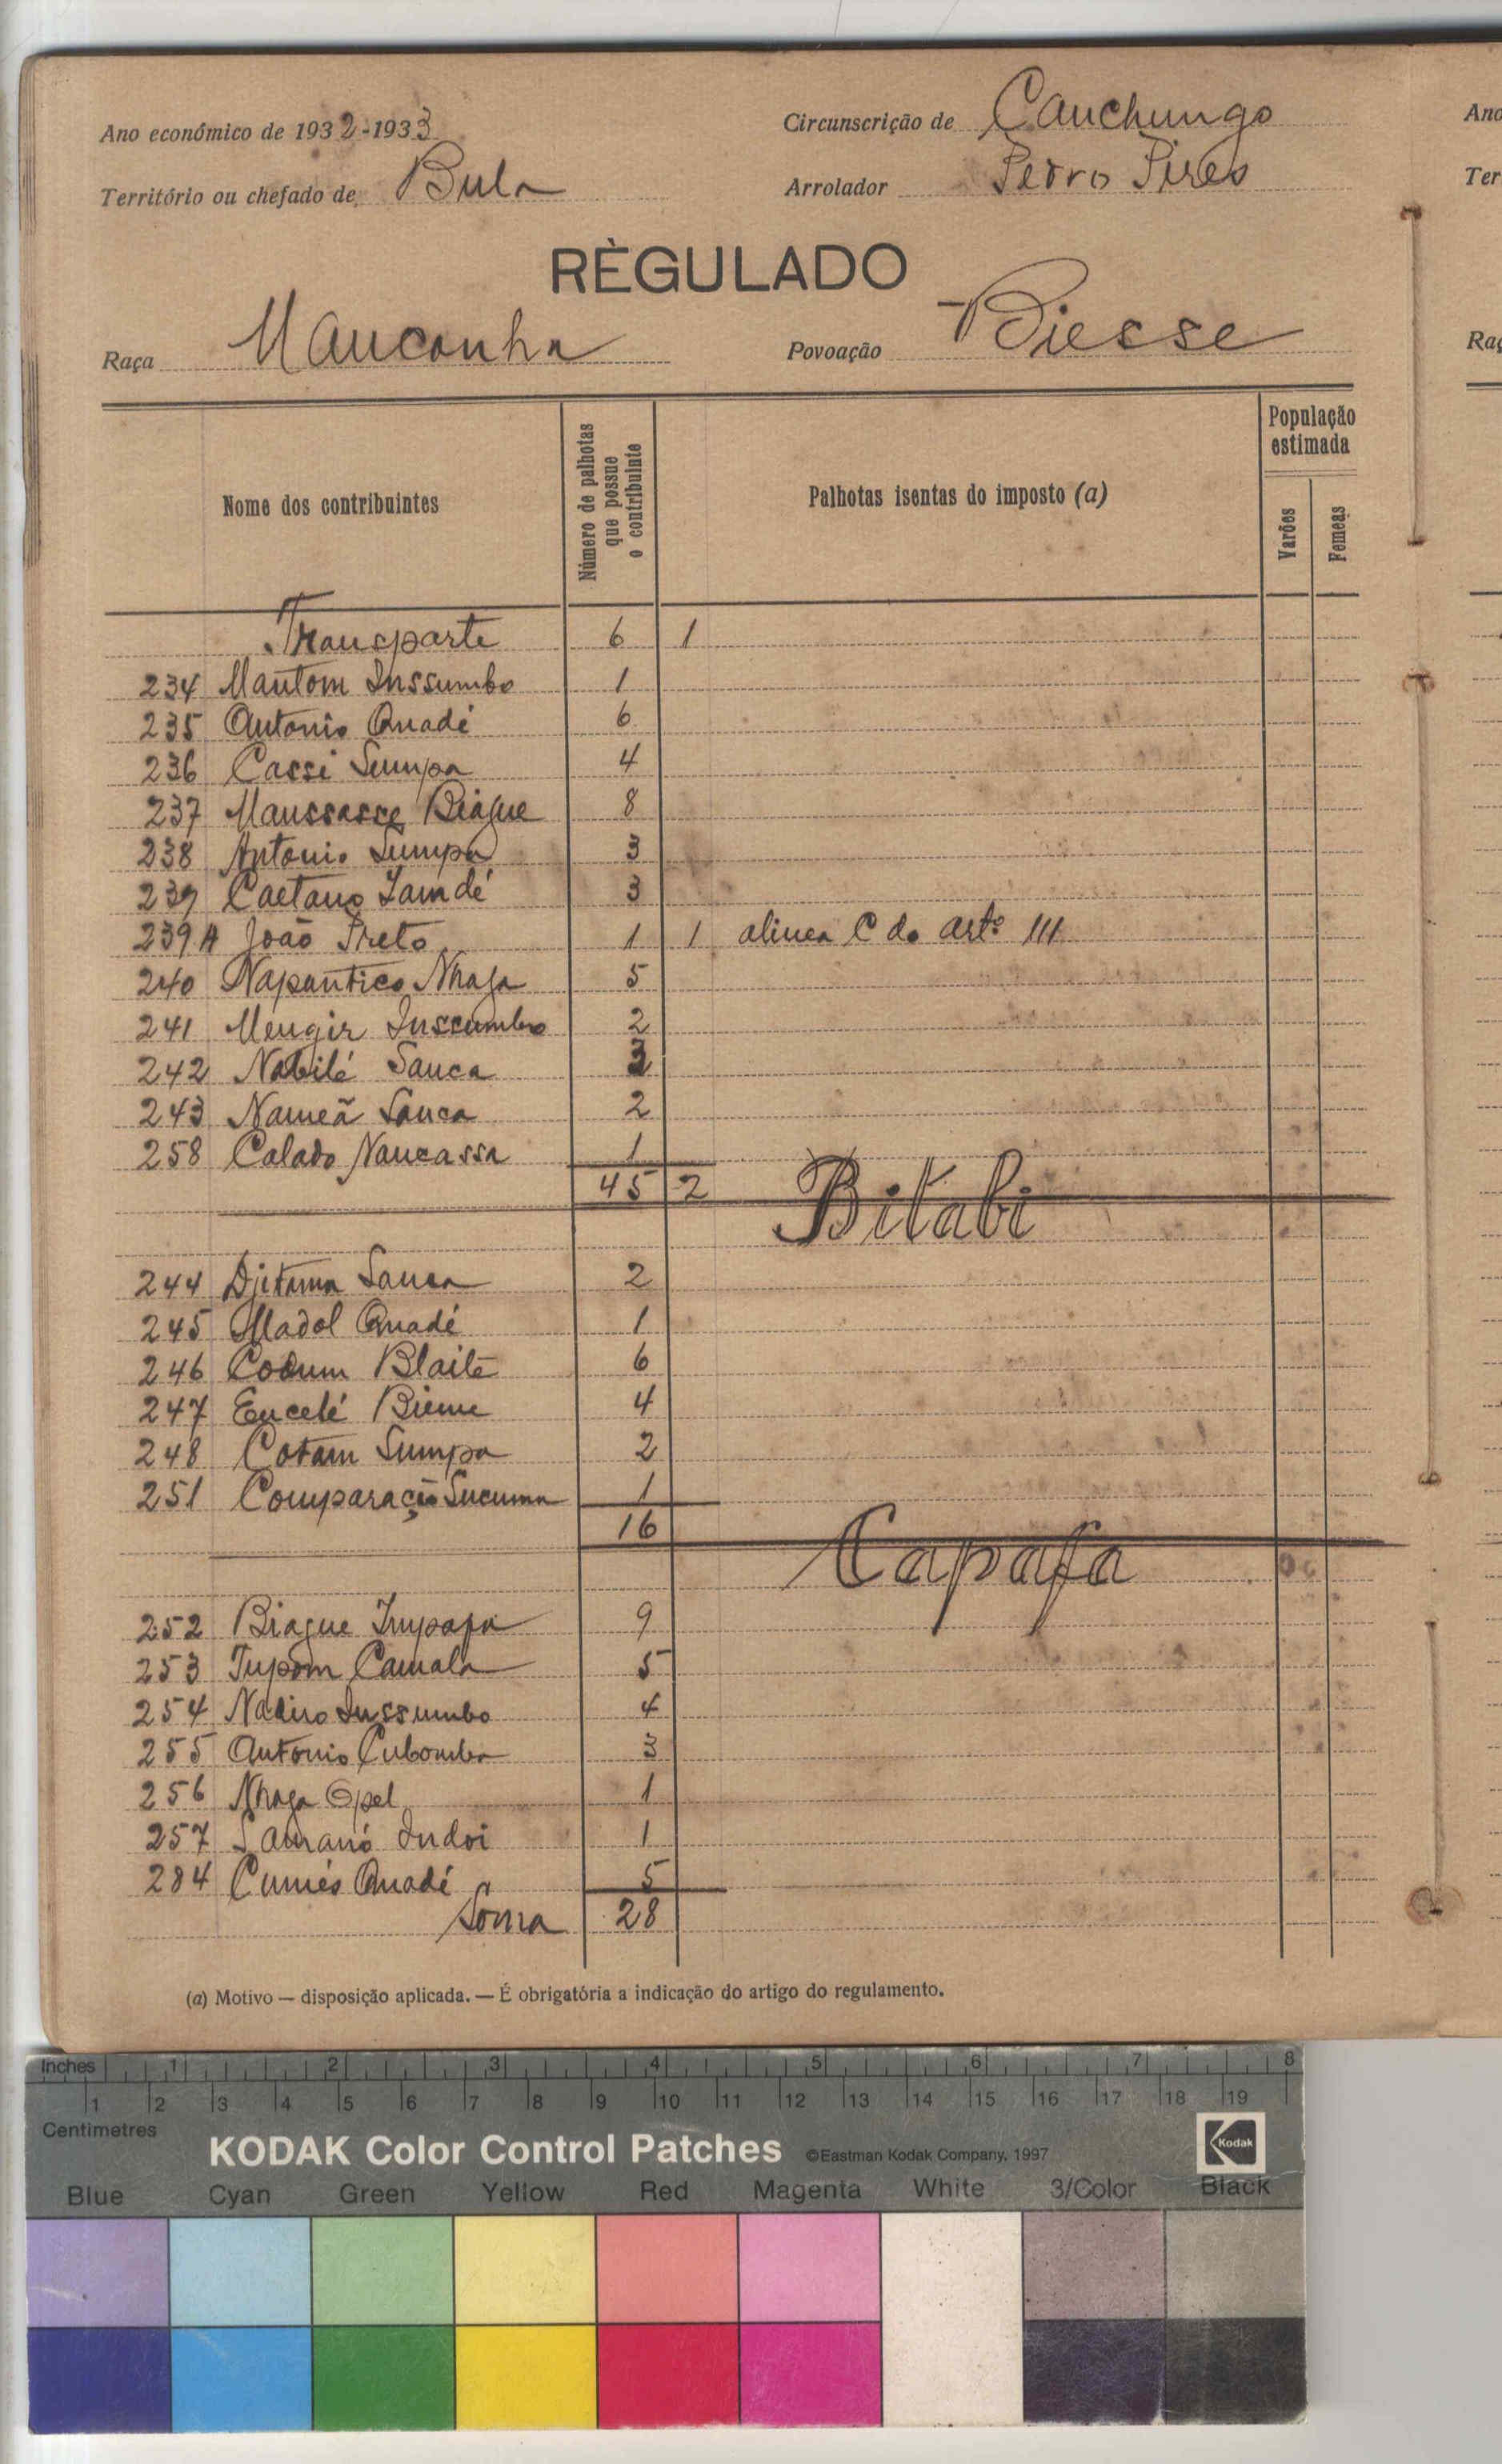 Ano económico de 1932-1933 Circunscrição de Cauchungo
Território ou chefado de Bula Arrolador Pedro Pires
RÈGULADO
Raça Mancanha Povoação Biesse
Nome dos contribuintes
Número de palhotas
que possue
o contribuinte
Palhotas isentas do imposto (a)
População
estimada
Varões
Femeas
Transparte 6 1
234 Mantom Inssumbo 1
235 Antonio Quadé 6
236 Cassi Sumpa 4
237 Maussasse Biague 8
238 Antonio Sumpa 3
239 Caetano Landé 3
239 A João Preto 1 1 alinea C do artº 111
240 Napantico Nhaga 5
241 Mengir Inssumbo 2
242 Nabilé Sanca 3
243 Nameã Sanca 2
258 Calado Naucassa 1
45 2
Bitabi
244 Djitama Sanca 2
245 Madol Quadé 1
246 Codum Blaite 6
247 Encelé Bieme 4
248 Cotam Sumpa 2
251 Comparação Sucuma 1
16
Capafa
252 Biague 9
253 Tupom Camala 5
254 Inssumbo 4
255 Antonio Cubomba 3
256 Nhaga Opel 1
257 Indoi 1
284 Cumés Quadé 5
Soma 28
(a) Motivo — disposição aplicada. — É obrigatória a indicação do artigo do regulamento.
Ano
Ter
Raç
Inches 1 2 3 4 5 6 7 8
1 2 3 4 5 6 7 8 9 10 11 12 13 14 15 16 17 18 19
Centimetres
KODAK Color Control Patches ©Eastman Kodak Company, 1997 Kodak
Blue Cyan Green Yellow Red Magenta White 3/Color Black